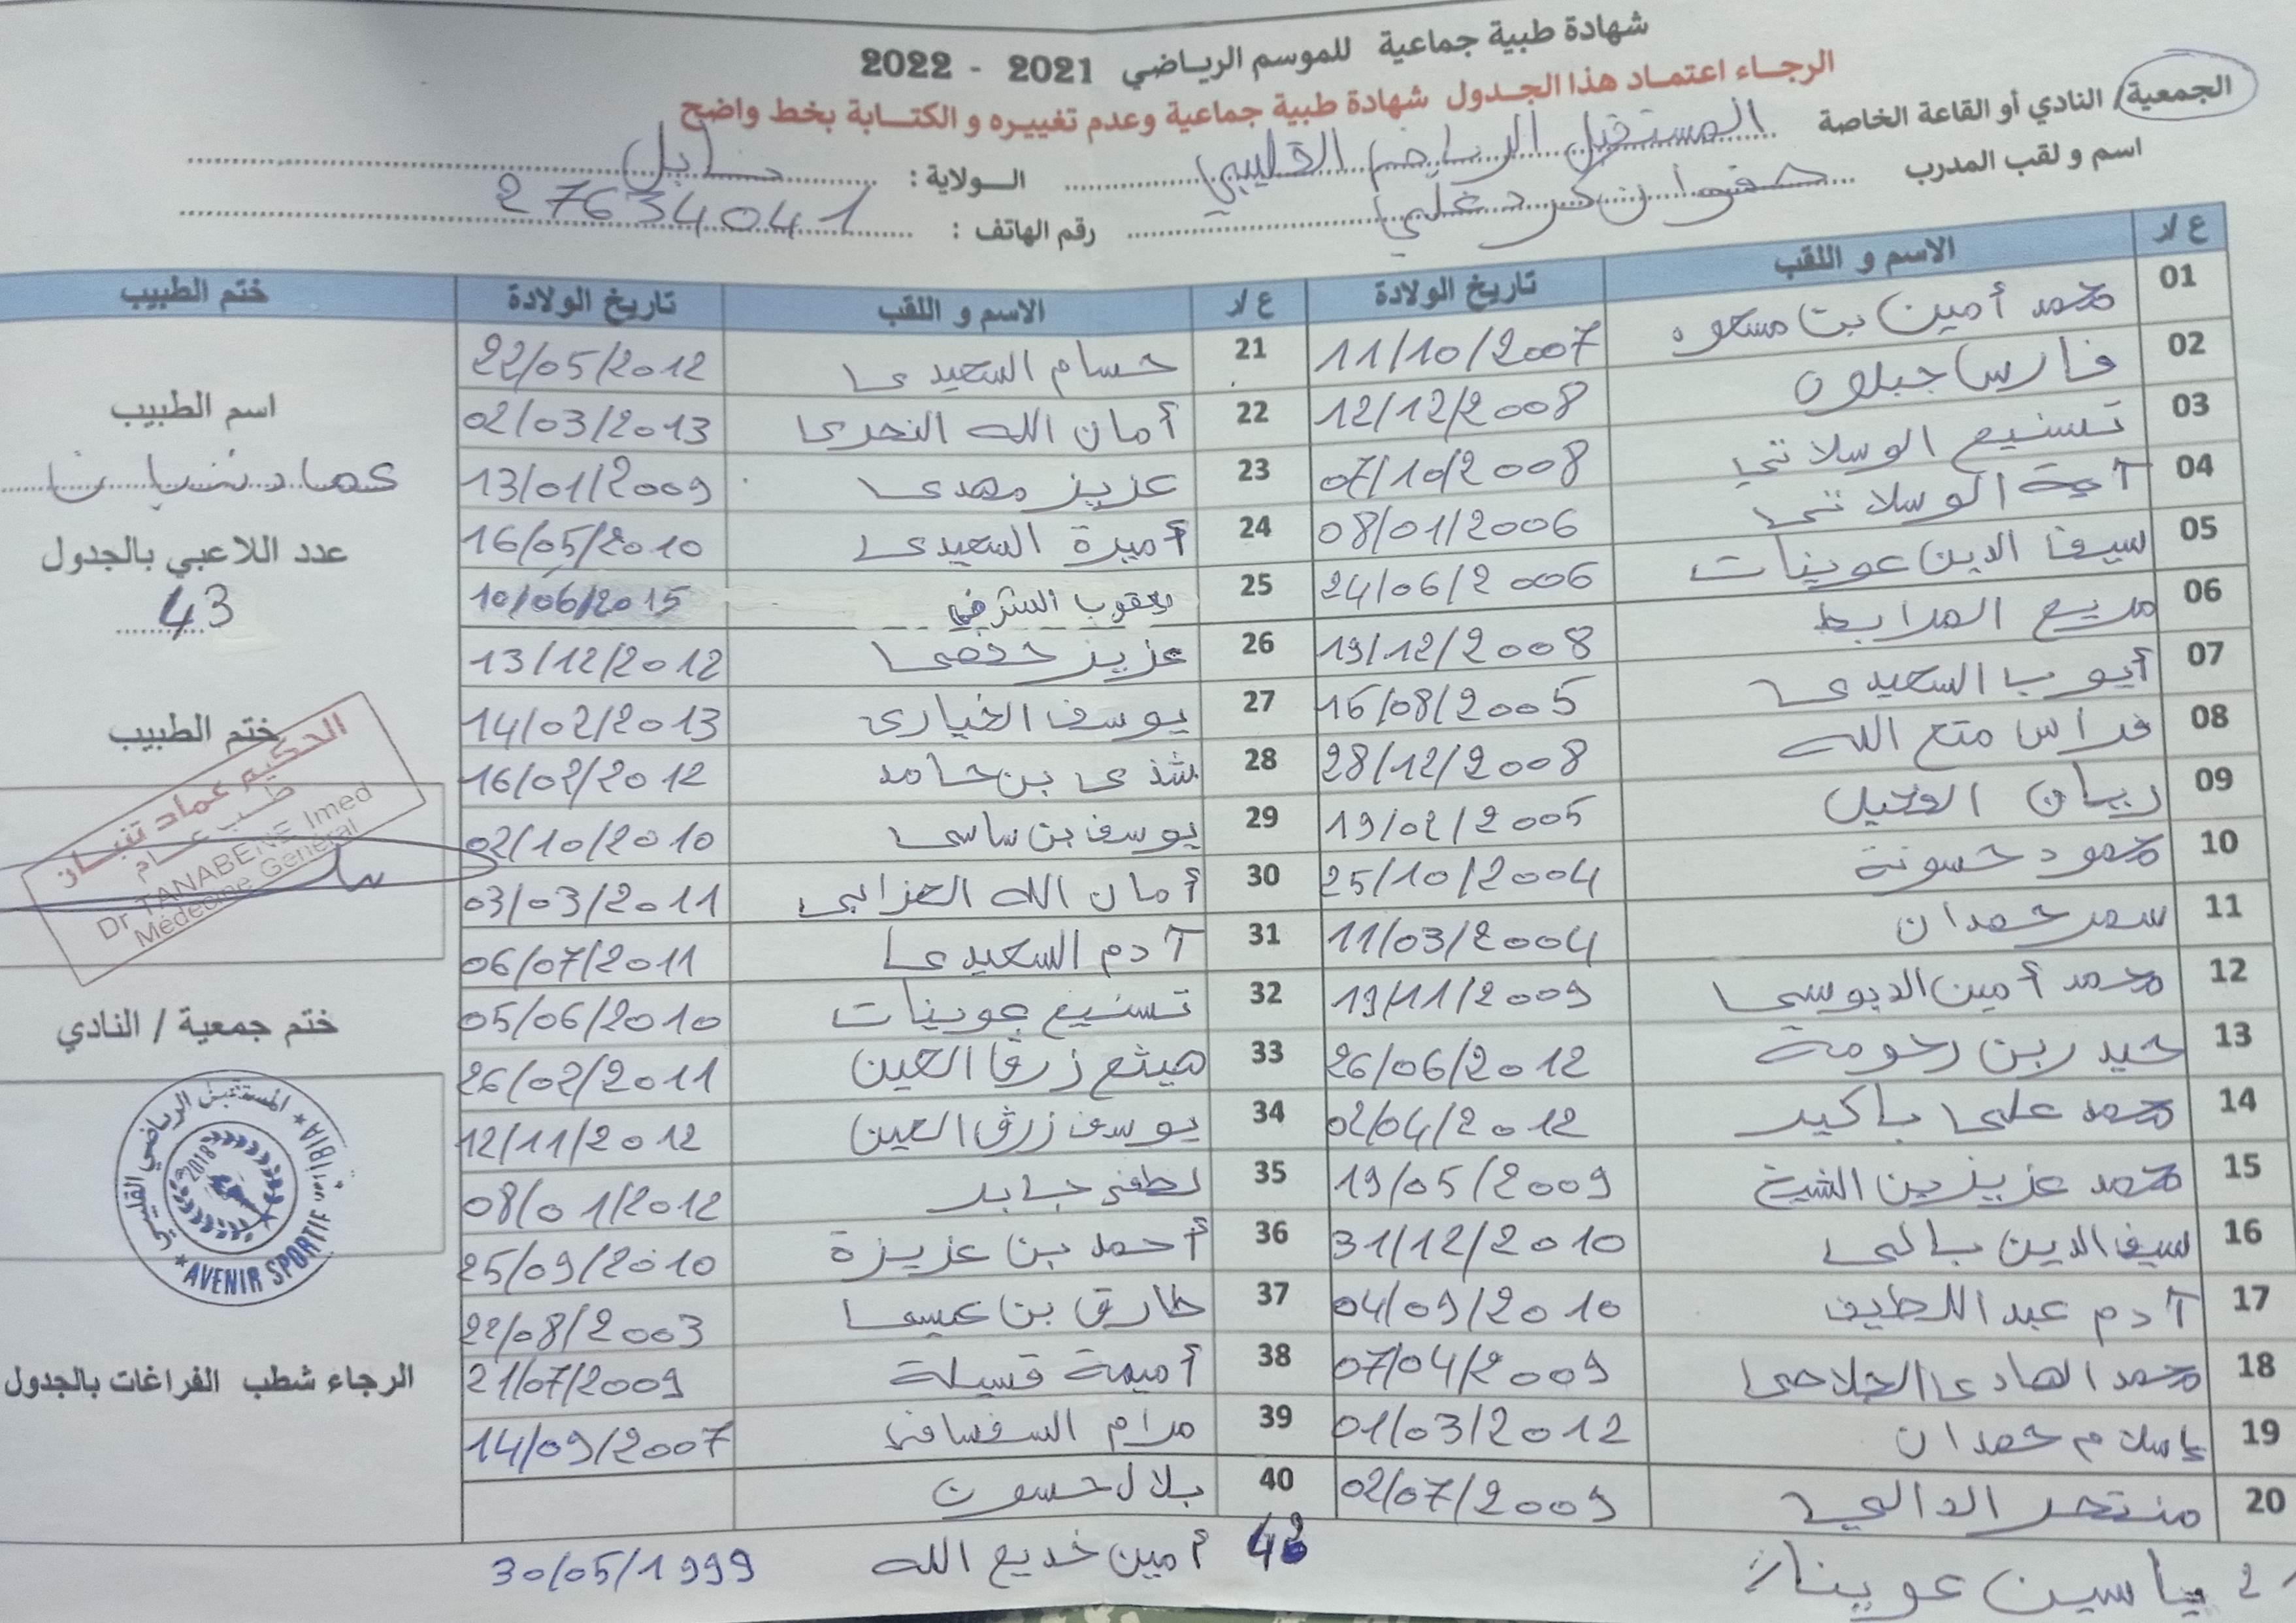 شهادة طبية جماعية للموسم الرياضي 2021 - 2022
الرجاء اعتماد هذا الجدول شهادة طبية جماعية وعدم تغييره و الكتابة بخط واضح
الجمعية/ النادي أو القاعة الخاصة المستقبل الرياضي القليبي الولاية : نابل
اسم و لقب المدرب صفوان كردغلي رقم الهاتف : 27634041
ع/د الاسم و اللقب تاريخ الولادة ع/د الاسم و اللقب تاريخ الولادة ختم الطبيب
01 محمد أمين بن مسعود 11/10/2007 21 حسام السعيدي 22/05/2012
02 فارس 12/12/2008 22 أمان الله 02/03/2013
اسم الطبيب
03 تسنيم الوسلاتي 07/10/2008 23 عزيز مهدي 13/01/2009
عماد تنبان
04 آية الوسلاتي 08/01/2006 24 أميرة السعيدي 16/05/2010
عدد اللاعبي بالجدول
05 سيف الدين عوينات 24/06/2006 25 يعقوب الشرفي 10/06/2015
43
06 مريم المرابط 19/12/2008 26 عزيز حفصي 13/12/2012
07 أيوب السعيدي 16/08/2005 27 يوسف الخياري 14/02/2013
ختم الطبيب
08 فراس متع الله 28/12/2008 28 شذى بن حامد 16/02/2012
09 ريان 19/02/2005 29 يوسف بن ساسي 02/10/2010
10 محمود حسونة 25/10/2004 30 أمان الله العزابي 03/03/2011
الحكيم عماد تنبان
طب عام
Dr TANABENE Imed
Médecine Général
11 سمر حمدان 11/03/2004 31 آدم السعيدي 06/07/2011
12 محمد أمين الدبوسي 19/11/2009 32 تسنيم عوينات 05/06/2010
ختم جمعية / النادي
13 حيدر بن رحومة 26/06/2012 33 هيثم زرق العين 26/02/2011
14 محمد علي باكير 02/04/2012 34 يوسف زرق العين 12/11/2012
15 محمد عزيز بن الشيخ 19/05/2009 35 لطفي جابر 08/01/2012
المستقبل الرياضي القليبي
2018
AVENIR SPORTIF
16 سيف الدين بالي 31/12/2010 36 أحمد بن عزيزة 25/09/2010
17 آدم عبد اللطيف 04/09/2010 37 طارق بن عيسى 22/08/2003
18 محمد الهادي 07/04/2009 38 أميمة قسيلة 21/07/2009
الرجاء شطب الفراغات بالجدول
19 إسلام حمدان 01/03/2012 39 مرام السفسافي 14/09/2007
20 منتصر الدالي 02/07/2009 40 بلال حسون
أمين خديع الله 30/05/1999
ياسين عوينات